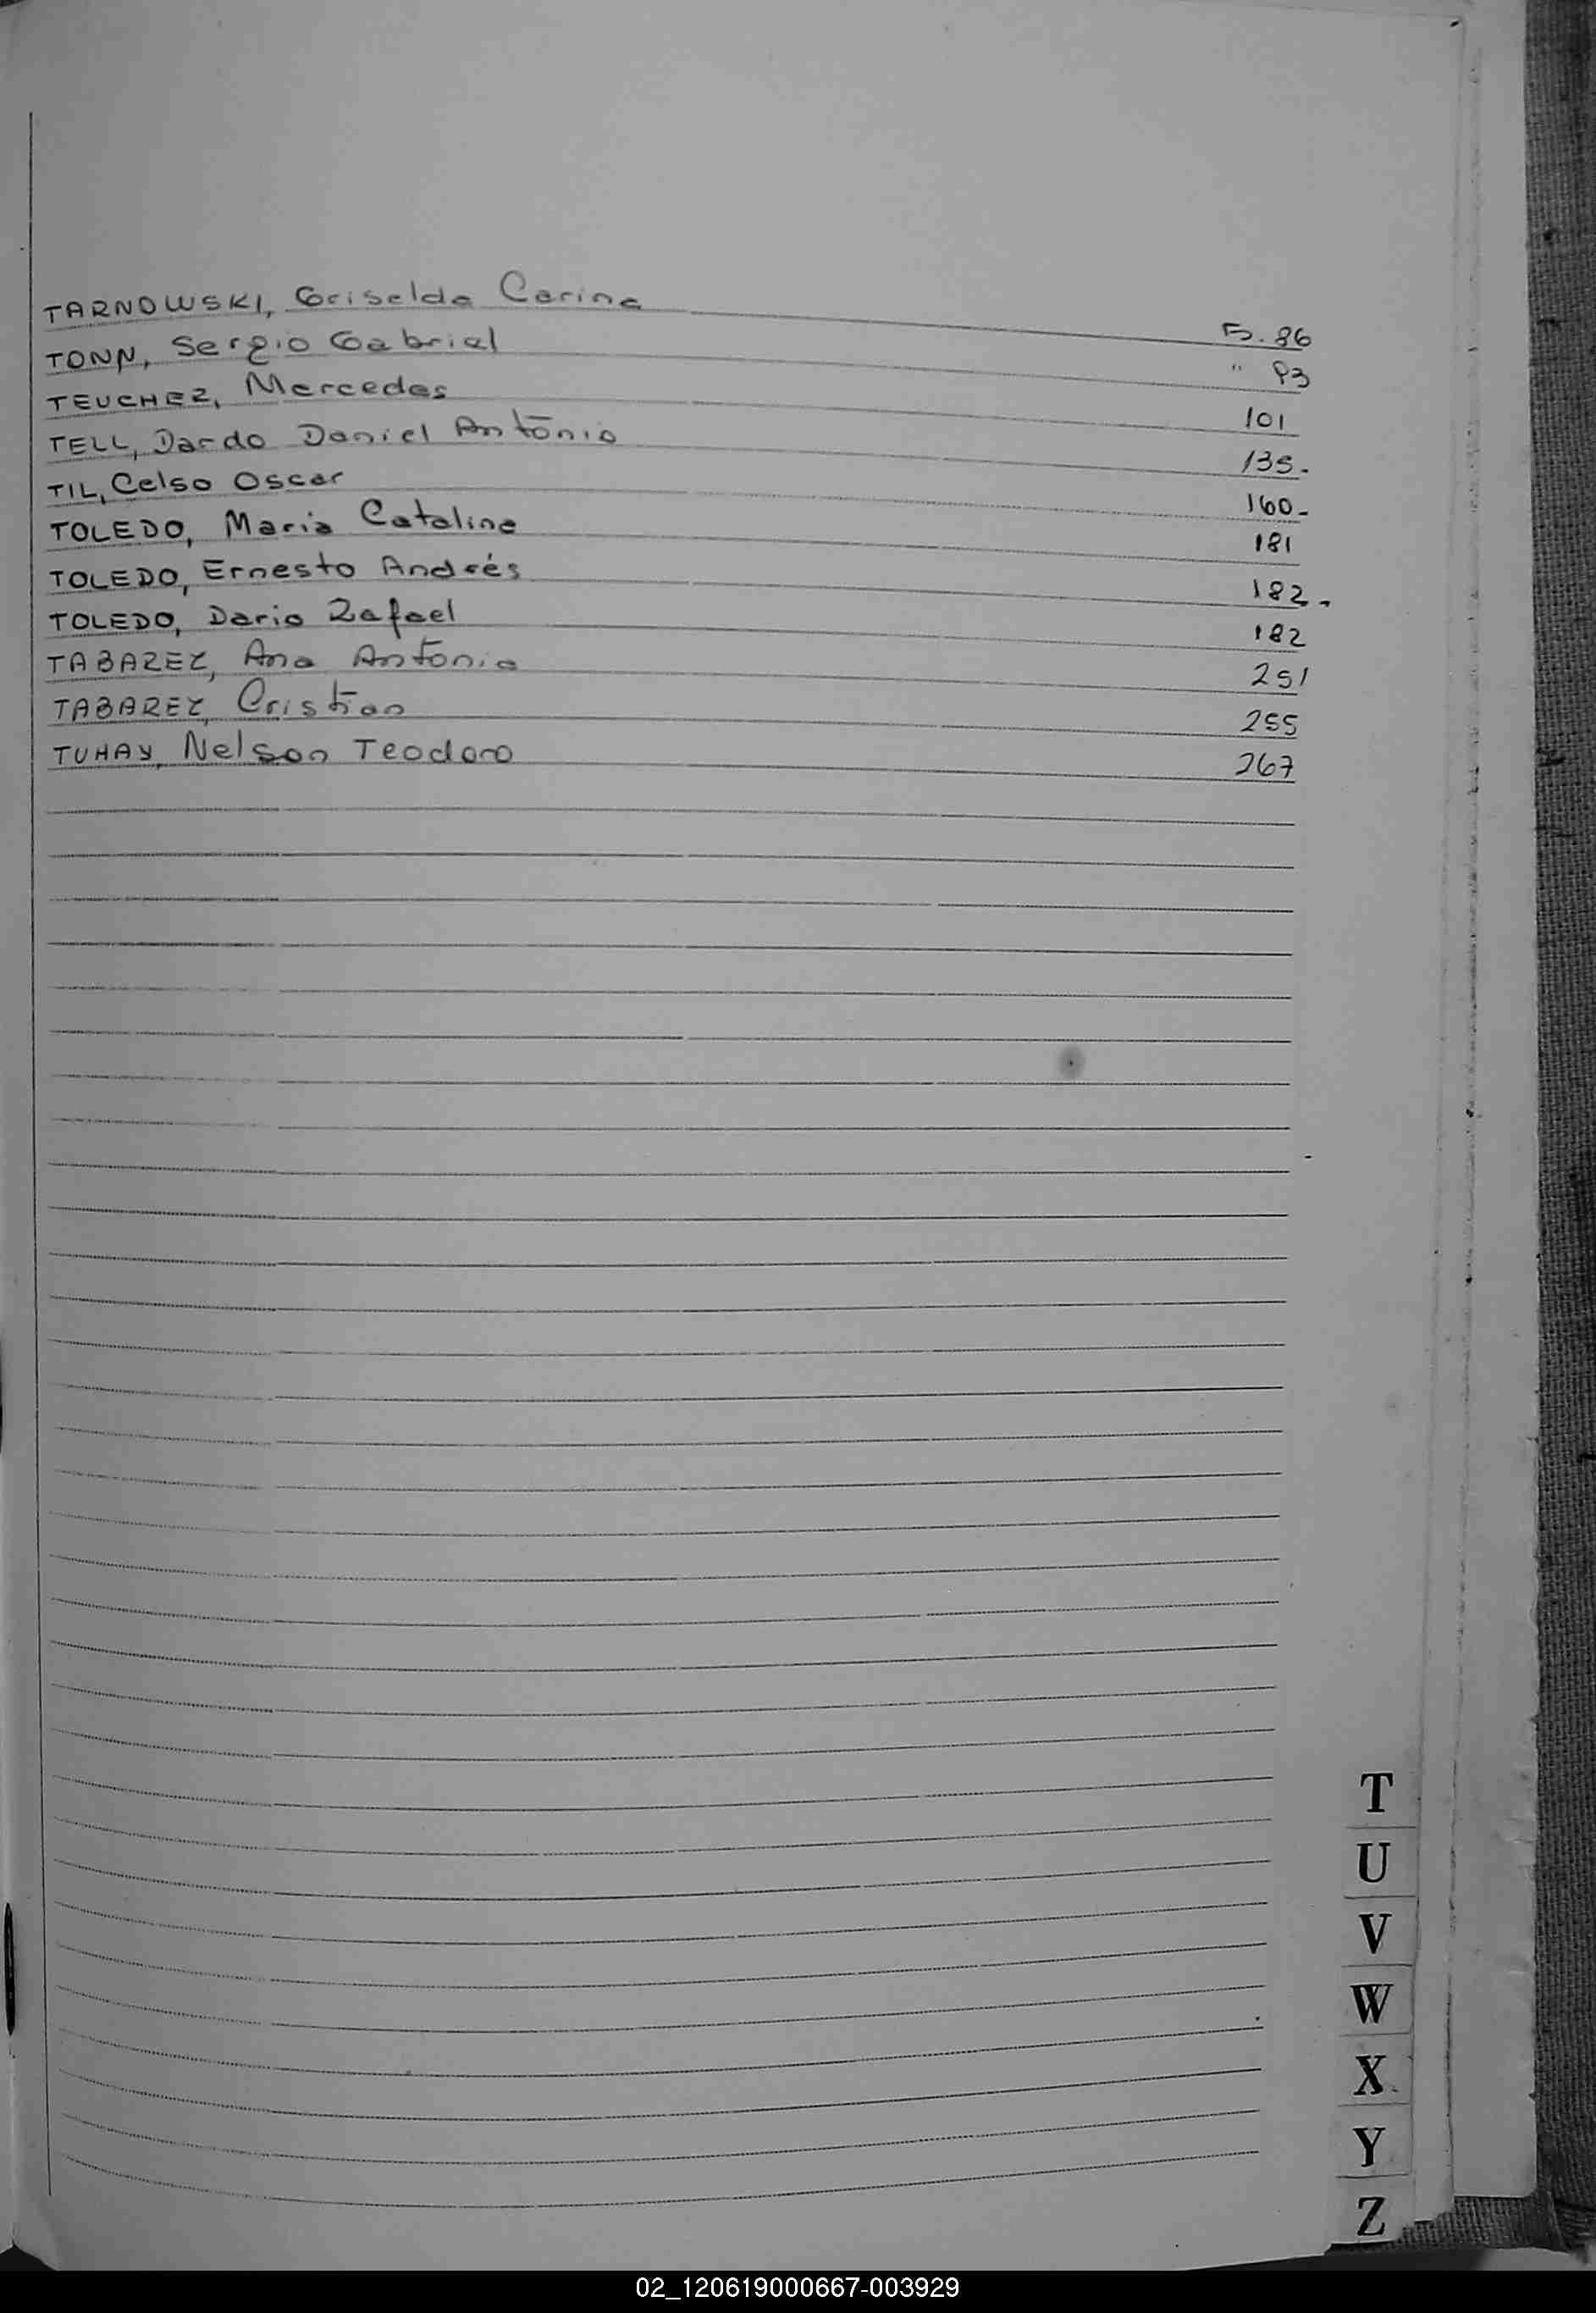 TARNOWSKI, Griselda Carina F. 86
TONN, Sergio Gabriel " 93
TEUCHEZ, Mercedes 101
TELL, Dardo Daniel Antonio 135.
TIL, Celso Oscar 160-
TOLEDO, Maria Catalina 181
TOLEDO, Ernesto Andrés 182.
TOLEDO, Dario Rafael 182
TABAREZ, Ana Antonia 251
TABAREZ, Cristian 255
TUHAY, Nelson Teodoro 267
T
U
V
W
X
Y
Z
02_120619000667-003929